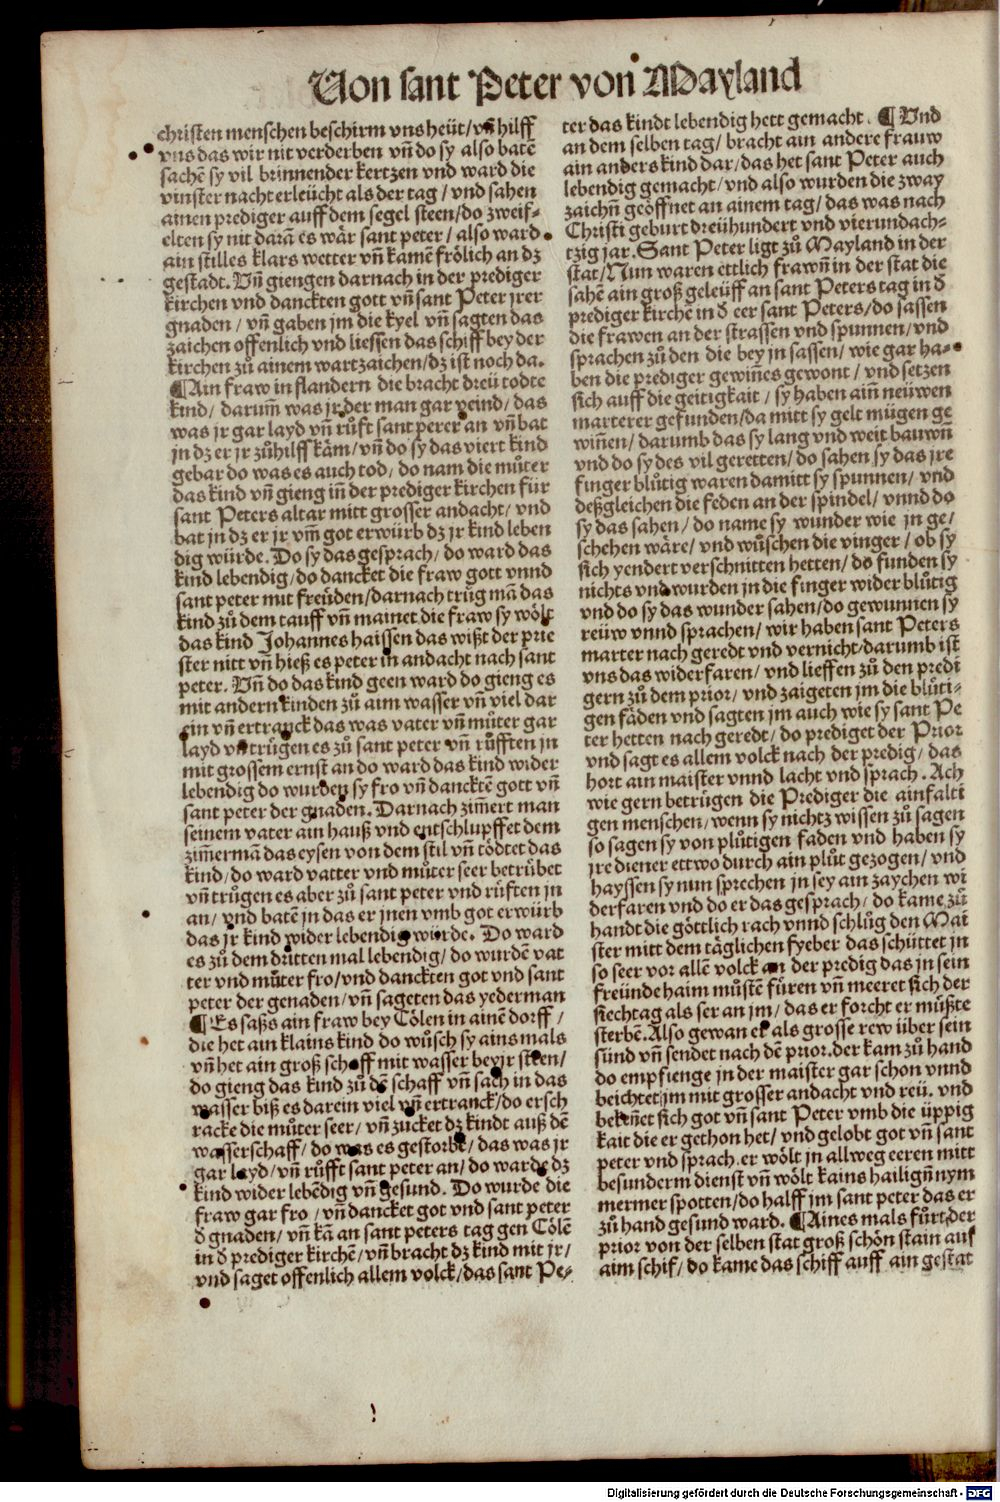 Von sant Peter von Mayland
christen menschen beschirm vns heüt/vñ hilff
vns das wir nit verderben vñ do sy also batē
sachē sy vil brinnender kertzen vnd ward die
vinster nacht erleücht als der tag/vnd sahen
ainen prediger auff dem segel steen/do zweif⸗
elten sy nit darā es wär sant peter/also ward
ain stilles klars wetter vñ kamē frölich an dz
gestadt. Vñ giengen darnach in der prediger
kirchen vnd danckten gott vñ sant Peter jrer
gnaden/vñ gaben jm die kyel vñ sagten das
zaichen offenlich vnd liessen das schiff bey der
kirchen zů ainem wartzaichen/dz ist noch da.
¶Ain fraw in flandern die bracht dreü todte
kind/darum̄ was jr der man gar veind/das
was jr gar layd vñ růfft sant perer an vñ bat
jn dz er jr zů hilff käm/vñ do sy das viert kind
gebar do was es auch tod/do nam die můter
das kind vñ gieng iñ der prediger kirchen für
sant Peters altar mitt grosser andacht/vnd
bat jn dz er jr vm̄ got erwürb dz jr kind leben
dig würde. Do sy das gesprach/do ward das
kind lebendig/do dancket die fraw gott vnnd
sant peter mit freüden/darnach trůg mā das
kind zů dem tauff vñ mainet die fraw sy wölt
das kind Johannes haissen das wißt der prie
ster nitt vñ hieß es peter in andacht nach sant
peter. Vñ do das kind geen ward do gieng es
mit andern kinden zů aim wasser vñ viel dar
ein vñ ertranck das was vater vñ můter gar
layd vñ trůgen es zů sant peter vñ růfften jn
mit grossem ernst an do ward das kind wider
lebendig do wurden sy fro vñ danckte̅ gott vñ
sant peter der gnaden. Darnach zim̄ert man
seinem vater ain hauß vnd entschlupffet dem
zim̄ermā das eysen von dem stil vñ tödtet das
kind/do ward vatter vnd můter seer betrübet
vñ trůgen es aber zů sant peter vnd růften jn
an/vnd batē jn das er jnen vmb got erwürb
das jr kind wider lebendig würde. Do ward
es zů dem dritten mal lebendig/do wurdē vat
ter vnd můter fro/vnd danckten got vnd sant
peter der genaden/vñ sageten das yederman
¶Es saß ain fraw bey Cölen in ainē dorff/
die het ain klains kind do wůsch sy ains mals
vñ het ain groß schaff mit wasser bey jr steen/
do gieng das kind zů dē schaff vñ sach in das
wasser biß es darein viel vñ ertranck/do ersch
racke die můter seer/vñ zucket dz kindt auß dē
wasserschaff/do was es gestorbē/das was jr
gar layd/vñ růfft sant peter an/do warde dz
kind wider lebēdig vñ gesund. Do wurde die
fraw gar fro/vñ dancket got vnd sant peter
đ gnaden/vñ kā an sant peters tag gen Cölē
in đ prediger kirchē/vñ bracht dz kind mit jr/
vnd saget offenlich allem volck/das sant Pe⸗
ter das kindt lebendig hett gemacht. ¶Vnd
an dem selben tag/bracht ain andere frauw
ain anders kind dar/das het sant Peter auch
lebendig gemacht/vnd also wurden die zway
zaichñ geöffnet an ainem tag/das was nach
Christi geburt dreühundert vnd vierundach⸗
tzig jar. Sant Peter ligt zů Mayland in der
stat/Nun waren ettlich frawñ in der stat die
sahē ain groß geleüff an sant Peters tag in đ
prediger kirchē in đ eer sant Peters/do sassen
die frawen an der strassen vnd spunnen/vnd
sprachen zů den die bey jn sassen/wie gar ha⸗
ben die prediger gewin̄es gewont/vnd setzen
sich auff die geitigkait/sy haben ain̄ neüwen
marterer gefunden/da mitt sy gelt mügen ge
win̄en/darumb das sy lang vnd weit bauwñ
vnd do sy des vil geretten/do sahen sy das jre
finger blůtig waren damitt sy spunnen/vnd
deßgleichen die feden an der spindel/vnnd do
sy das sahen/do name sy wunder wie jn ge/
schehen wäre/vnd wůschen die vinger/ob sy
sich yendert verschnitten hetten/do funden sy
nichts vnd wurden jn die finger wider blůtig
vnd do sy das wunder sahen/do gewunnen sy
reüw vnnd sprachen/wir haben sant Peters
marter nach geredt vnd vernicht/darumb ist
vns das widerfaren/vnd lieffen zů den predi
gern zů dem prior/vnd zaigeten jm die blůti⸗
gen fäden vnd sagten jm auch wie sy sant Pe
ter hetten nach geredt/do prediget der Prior
vnd sagt es allem volck nach der predig/das
hort ain maister vnnd lacht vnd sprach. Ach
wie gern betrügen die Prediger die ainfalti
gen menschen/wenn sy nichtz wissen zů sagen
so sagen sy von plůtigen faden vnd haben sy
jre diener ettwo durch ain plůt gezogen/vnd
hayssen sy nun sprechen jn sey ain zaychen wi
derfaren vnd do er das gesprach/do kame zů
handt die göttlich rach vnnd schlůg den Mai
ster mitt dem täglichen fyeber das schüttet jn
so seer vor allē volck an der predig das jn sein
freünde haim můstē füren vñ meeret sich der
siechtag als ser an jm/das er forcht er müßte
sterbē. Also gewan er als grosse rew über sein
sünd vñ sendet nach dē prior. der kam zů hand
do empfienge jn der maister gar schon vnnd
beichtet jm mit grosser andacht vnd reü. vnd
beken̄et sich got vñ sant Peter vmb die üppig
kait die er gethon het/vnd gelobt got vñ sant
peter vnd sprach. er wölt jn allweg eeren mitt
besunderm dienst vñ wölt kains hailigñ nym
mermer spotten/do halff jm sant peter das er
zů hand gesund ward. ¶Aines mals fůrt der
prior von der selben stat groß schön stain auf
aim schif/do kame das schiff auff ain gestat
Digitalisierung gefördert durch die Deutsche Forschungsgemeinschaft - DFG